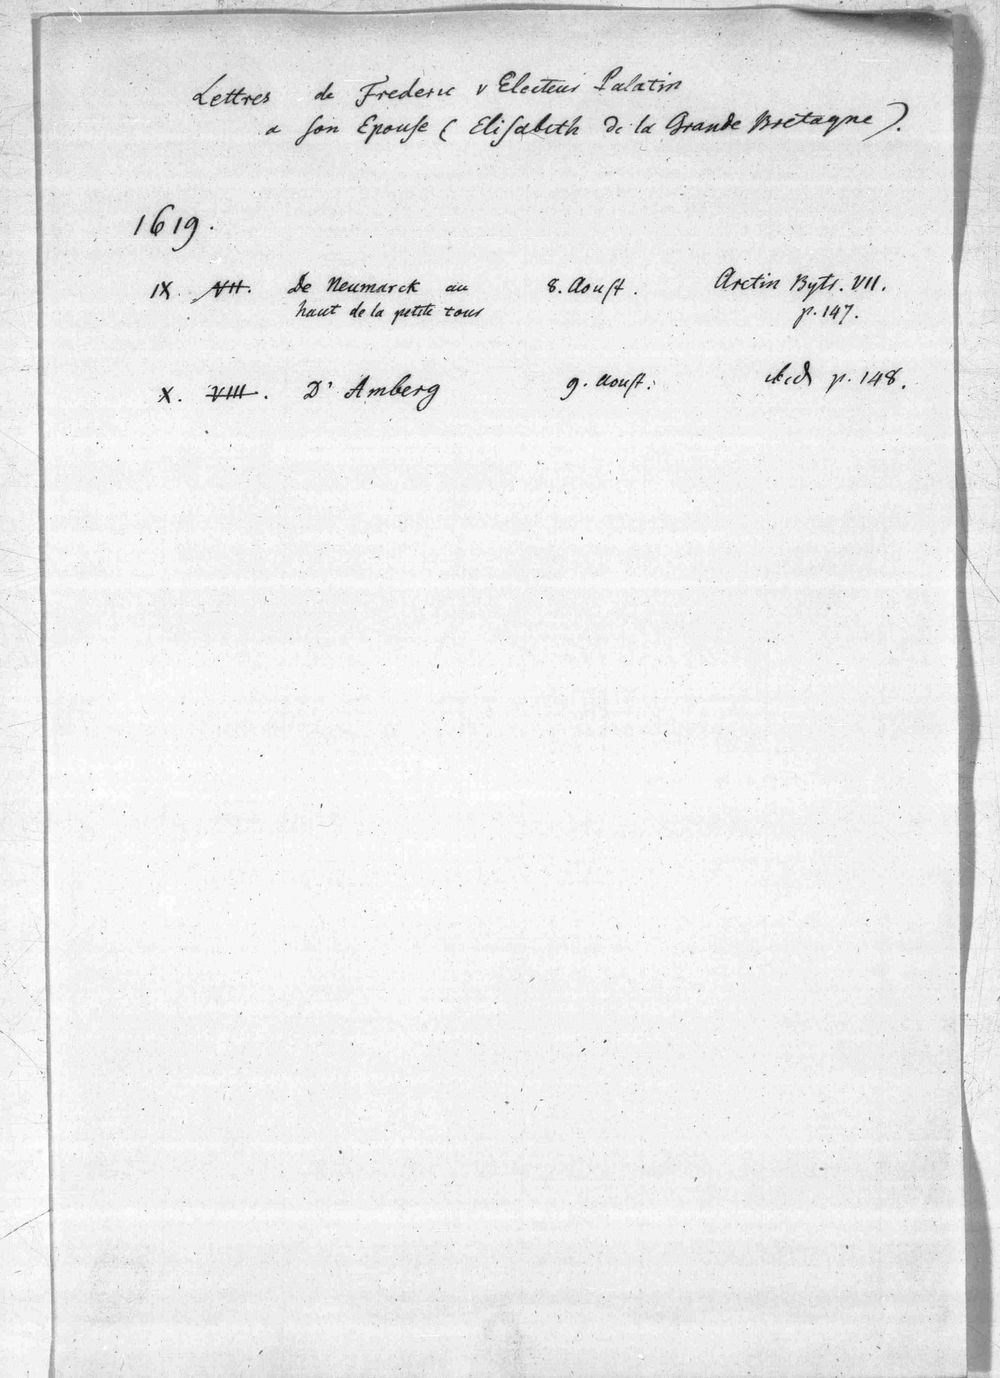 Lettres de Frederic v Electeur Palatin
a son Epouse ( Elisabeth de la Grande Bretagne ).
1619.
IX. VII. De Neumarck au 8. Aoust. Aretin Bytr. VII.
haut de la petite tour p. 147.
X. VIII. D' Amberg 9. Aoust. p. 148.